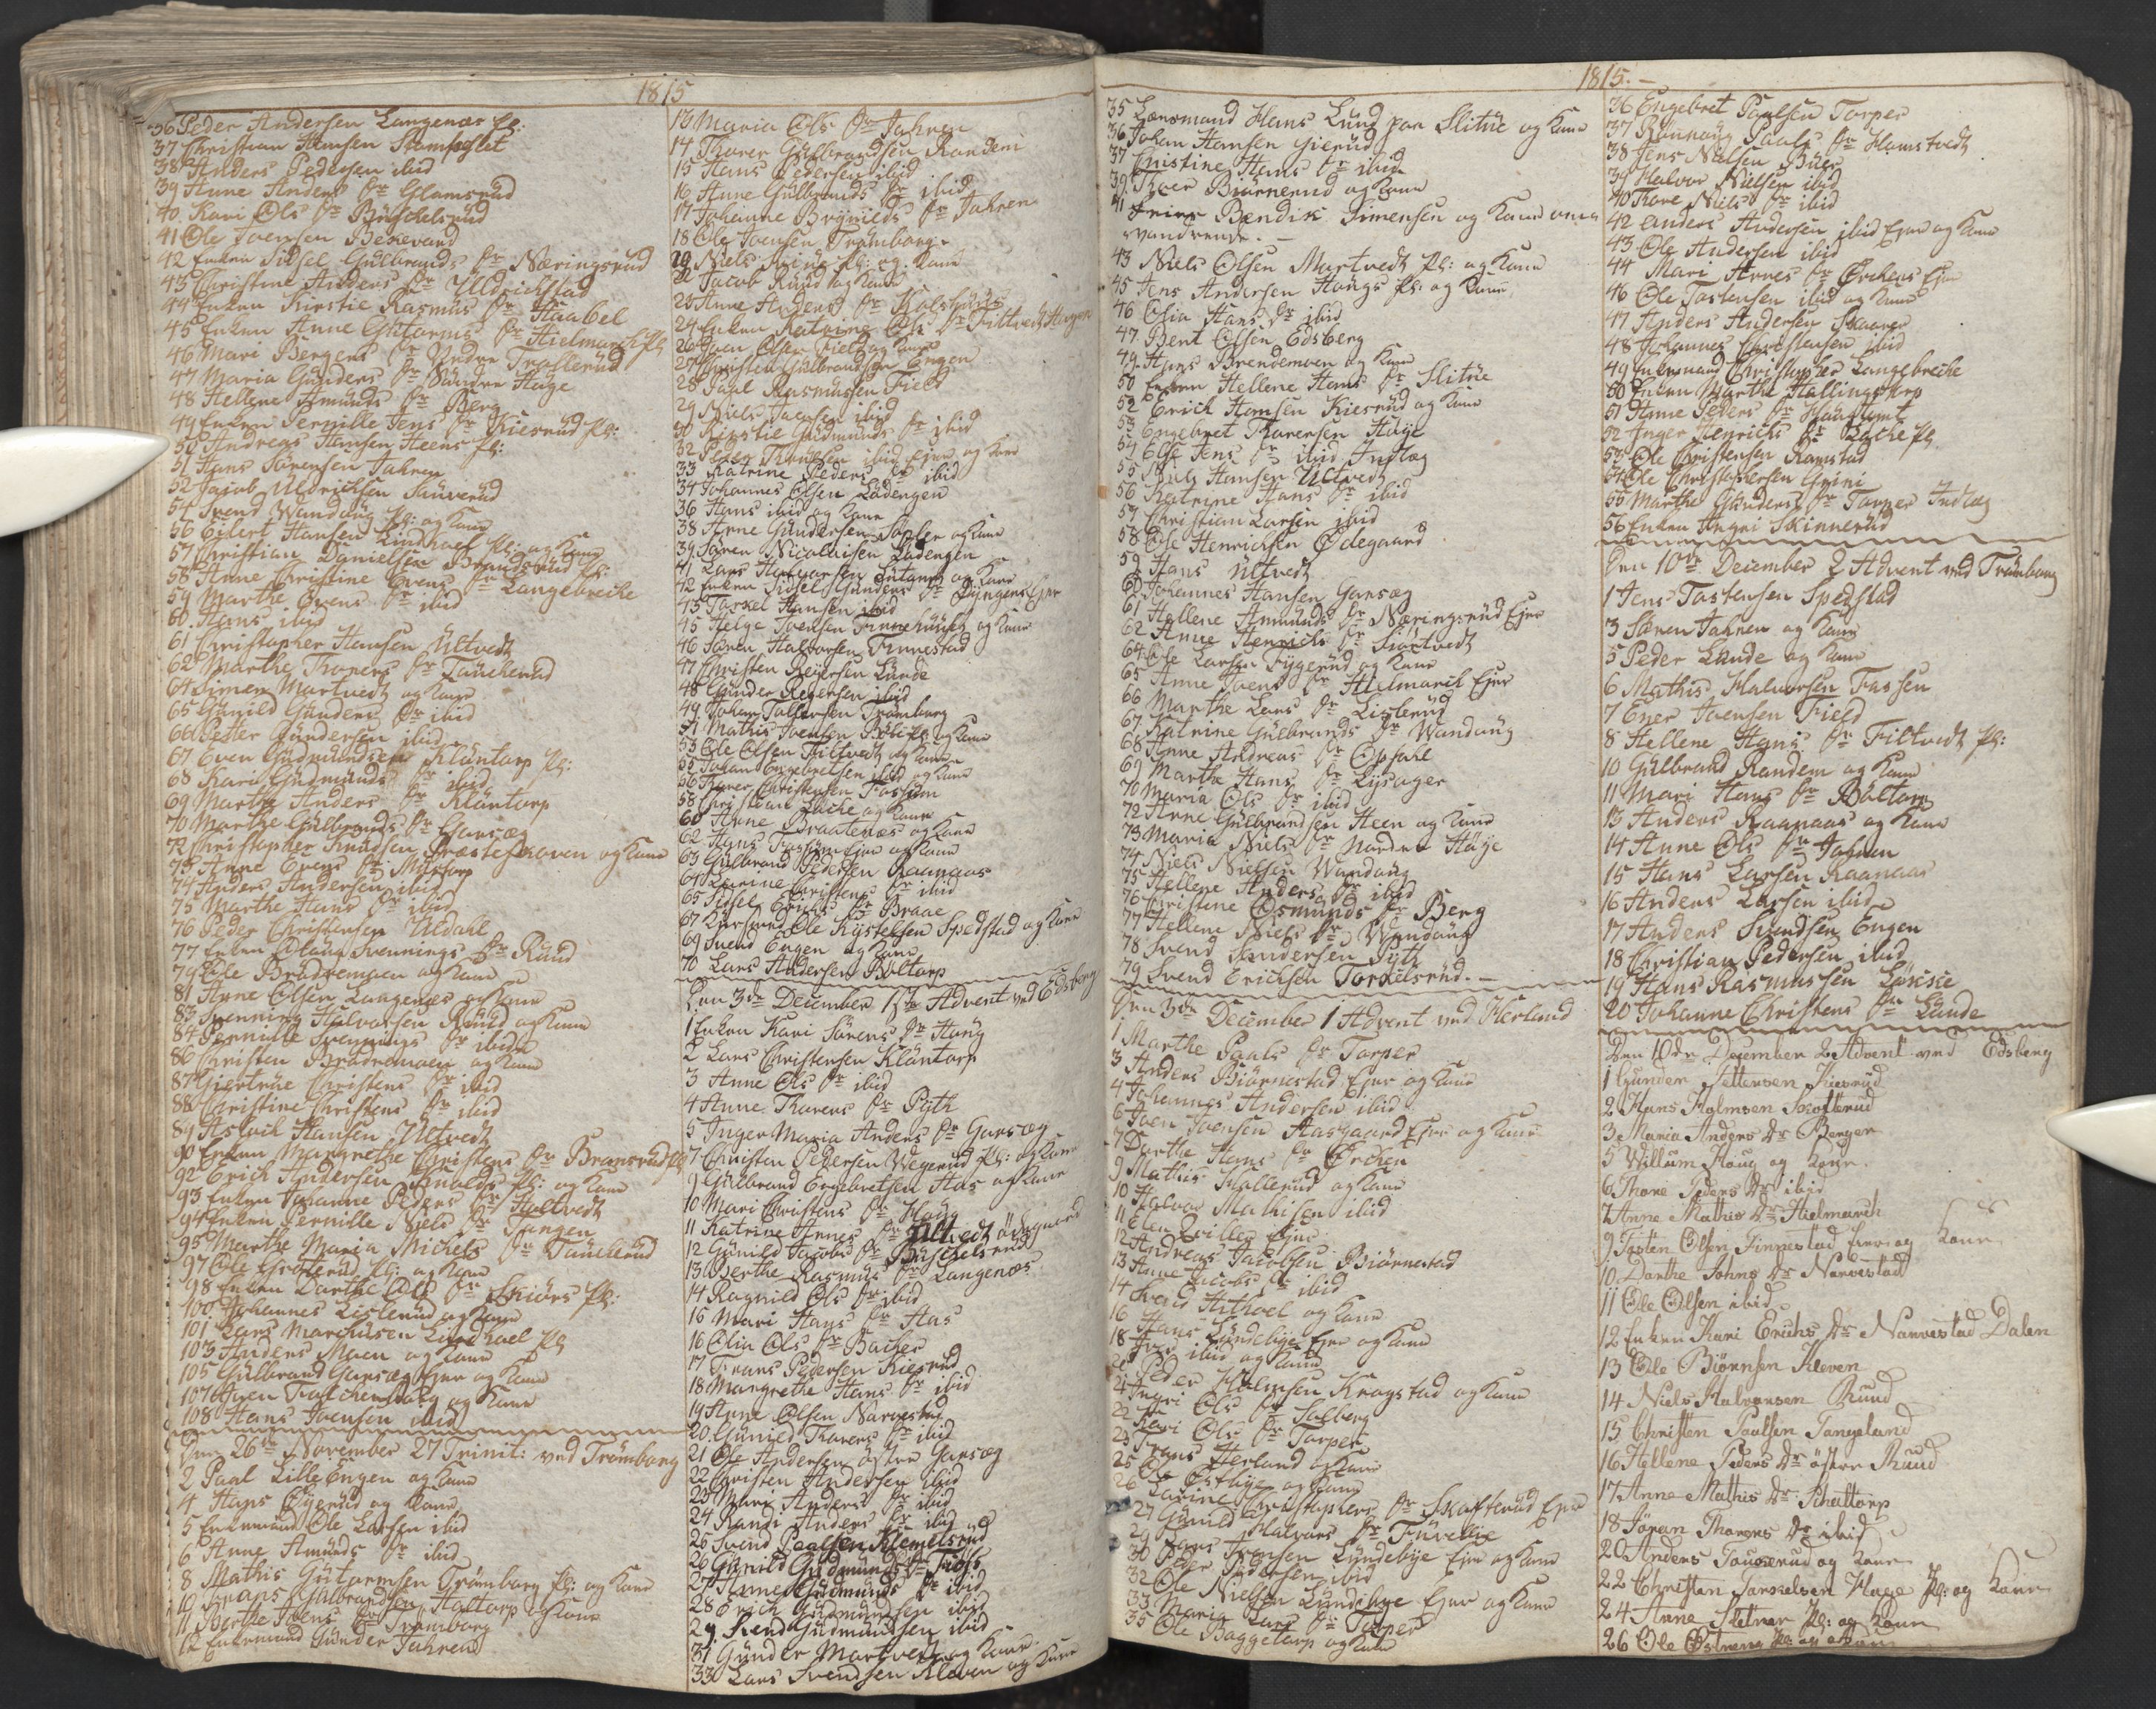 1815
36 Peder Andersen Langenæs Pl:
37 Christian Hansen
38 Anders Pedersen ibid
39 Anne Anders Dr Glamsrud
40. Kari Ols Dr Büschelsrüd
41 Ole Joensen
42 Enken Sidsel Gulbrands Dr Næringsrüd
43 Christine Anders Dr
44 Enken Kirstie Rasmus Dr Haabel
45 Enken Anne Gutorms Dr Hielmarck Pl
46 Mari Bergers Dr Trollerüd
47 Maria Gunders Dr Søndre Høye
48 Hellene Amunds Dr Berg
49 Enken Pernille Jens Dr Kiesrüd Pl:
50 Andreas Hansen Heens Pl:
51 Hans Sørensen Jahren
52 Jacob Uldrichsen
54 Svend Wandüg Pl: og Kone
56 Eilert Hansen Lindhael Pl: og Kone
57 Christian Danielsen Pl:
58 Anne Christine Evens Dr Langebreche
59 Marthe Evens Dr ibid
60. Hans ibid
61 Christopher Hansen Ultvedt
62 Marthe Thorers Dr Taücherüd
64 Simen Martvedt og Kone
65 Gunild Gunders Dr ibid
66 Peder Gundersen ibid
67 Even Gudmundsen Kläntorp Pl:
68 Kari Gudmunds Dr ibid
69 Marthe Anders Dr Kläntorp
70 Marthe Gulbrands Dr Garsæg
72 Christopher Knudsen Præsteskoven og Kone
73 Anne Evens Dr
74 Anders Andersen ibid
75 Marthe Hans Dr ibid
76 Peder Christensen Uldahl
77 Enken Olaug Svennings Dr Ruud
79 Ole Brädremoen og Kone
81 Arne Olsen Langenæs og Kone
83 Svenning Halvorsen Rüüd og Kone
84 Pernille Svennings Dr ibid
86 Christen Brädremoen og Kone
87 Giertrue Christens Dr ibid
88 Christine Christens Dr ibid
89 Aslach Hansen Ultvedt
90 Enken Margrethe Christens Dr Pl
92 Erich Andersen Pl: og Kone
93 Enken Johanne Peders Dr Holtvedt
94 Enken Pernille Niels Dr Tangen
95 Marthe Maria Michels Dr Taücherüd
97 Ole Pl: og Kone
98 Enken Dorthe Ols Dr Skiørs Pl:
100 Johannes Lislerüd og Kone
101 Lars Marchusen Lindhael Pl
103 Anders Moen og Kone
105 Gülbrand Garsæg Ejer og Kone
107 Joen og Kone
108 Hans Joensen ibid
Den 26de November 27 Trinit: ved Trömborg
2 Paal Lille Engen og Kone
4 Hans og Kone
5 Enkemand Ole Larsen ibid
6 Anne Amunds Dr ibid
8 Mathis Gutormsen Trömborg Pl: og Kone
10 Frans Gulbrandsen og Kone
11 Berthe Jens Dr Trömborg
12 Enkemand Gunder Jahren
13 Maria Ols Dr Jahren
14 Thorer Gulbrandsen Randem
15 Hans Pedersen ibid
16 Anne Gulbrands Dr ibid
17 Johanne Brynilds Dr Jahren
18 Ole Joensen Trömborg
20 Niels Pl: og Kone
22 Jacob Ruud og Kone
23 Anne Anders Dr
24 Enken Katrine Ols Dr Filtvedt Haugen
26 Joen Olsen Field og Kone
27 Christen Gulbrandsen Engen
28 Paul Rasmussen Field
29 Niels ibid
30 Kirstie Gudmunds Dr ibid
32 Peder ibid Ejer og Kone
33 Katrine Peders Dr ibid
34 Johannes Olsen Lädengen
36 Hans ibid og Kone
38 Arne Gundersen og Kone
39 Søren Nicolaisen Lädengen
41 Lars Halvorsen og Kone
42 Enken Sidsel Gunders Dr Ejer
43 Torkel Hansen ibid
45 Helge Joensen og Kone
46 Søren Halvorsen Finnestad
47 Christen Reyersen Lunde
48 Gunder Reyersen ibid
49 Johan Tollefsen Trömborg
51 Mathis Joensen og Kone
53 Ole Olsen Filtvedt og Kone
55 Johan Engebretsen ibid og Kone
56 Thorer Christensen Fossum
58 Christian Lache og Kone
60 Arne Braatenæs og Kone
62 Hans Fossum Ejer og Kone
63 Gulbrand Pedersen Raanaas
64 Karine Christens Dr ibid
65 Sidsel Erichs Dr Braae
67 Ole Kystelsen Spedstad og Kone
69 Svend Engen og Kone
70 Lars Andersen Boltorp
Den 3de December 1ste Advent ved Edsberg
1 Enken Kari Sørens Dr Haug
2 Lars Christensen Kläntorp
3 Anne Ols Dr ibid
4 Anne Thorers Dr Pyth
5 Inger Maria Anders Dr Garsæg
7 Christen Pedersen Wegerüd Pl: og Kone
9 Gülbrand Engebretsen Aas og Kone
10 Mari Christens Dr Haug
11 Katrine Arnes Dr Ultvedt ødegaard
12 Gunild Jacobs Dr Büschelsrud
13 Berthe Rasmus Dr Langenæs
14 Ragnild Ols Dr ibid
15 Mari Hans Dr Aas
16 Olia Ols Dr Backer
17 Frans Pedersen Kiesrud
18 Margrethe Hans Dr ibid
19 Anne Olsen Narvestad
20. Gunild Thorers Dr ibid
21 Ole Andersen østre Garsæg
22 Christen Andersen ibid
23 Mari Anders Dr ibid
24 Randi Anders Dr ibid
25 Svend Paalsen Klemetsrud
26 Gunild Gudmunds Dr
27 Anne Gudmunds Dr ibid
28 Erich Gudmundsen ibid
29 Svend Gudmundsen ibid
31 Gunder Martvedt og Kone
33 Lars Svendsen Kleven og Kone
1815. -
35 Lensmand Hans Lund paa Slitue og Kone
36 Johan Hansen Gierud
37 Christine Hans Dr ibid
39. Thoer Biørnerud og Kone
41 Bendix Simensen og Kone om-
vandrende. -
43 Niels Olsen Martvedt Pl: og Kone
45 Jens Andersen Haugs Pl: og Kone
46 Olia Hans Dr ibid
47. Bent Olsen Edsberg
49. Hans Brendemoen og Kone
50 Enken Hellene Hans Dr Slitue
52 Erich Hansen Kiesrud og Kone
53 Engebret Thoresen Høye
54 Else Jens Dr ibid Indlæg
55 Niels Hansen Ultvedt
56 Katrine Hans Dr ibid
57 Christian Larsen ibid
58 Ole Henrichsen Ødegaard
59 Hans Ultvedt
60 Johannes Hansen Garsæg
61 Hellene Amunds Dr Næringsrud Ejer
62 Anne Henrichs Dr
64 Ole Larsen og Kone
65 Anne Joens Dr Hielmarck Ejer
66 Marthe Lars Dr Lislerud
67 Katrine Gulbrands Dr Wandüg
68 Anne Andreas Dr Opsahl
69 Marthe Hans Dr Lysager
70 Maria Ols Dr ibid
72 Arne Gulbrandsen Heen og Kone
73 Maria Niels Dr nordre Høye
74 Niels Nielsen Wandüg
75 Hellene Anders Dr ibid
76 Christine Osmunds Dr Berg
77 Hellene Niels Dr Wandüg
78 Svend Andersen Pyth
79 Svend Erichsen Torkelsrud. -
Den 3de December 1 Advent ved Herland
1 Marthe Paals Dr Torper
3 Anders Biørnestad Ejer og Kone
4 Johannes Andersen ibid
6 Joen Joensen Aasgaard Ejer og Kone
7 Dorthe Hans Dr Ørchen
9 Mathis Hallerud og Kone
10 Halvor Mathisen ibid
11 Elen Ejer
12 Andreas Jacobsen Biørnestad
13 Anne Jacobs Dr ibid
14 Svend Hithoel og Kone
16 Hans Lyndebye Ejer og Kone
18 ibid og Kone
20 Peder Holmsen Kragstad og Kone
21 Ingri Ols Dr Solberg
22 Kari Ols Dr Torper
23 Frans Herland og Kone
25 Ole Østbye og Kone
26 Karine Christophers Dr Skofterud Ejer
27 Gunild Halvors Dr
29 Hans Hansen Lyndebye Ejer og Kone
30 Peder Pedersen ibid
32 Ole Nielsen Lyndebye Ejer og Kone
33 Maria Lars Dr Torper
35 Ole Baggetorp og Kone
36 Engebret Paulsen Torper
37 Rønnaug Paals Dr Hamstvedt
38 Jens Nielsen Buer
39 Halvor Nielsen ibid
40 Thore Niels Dr ibid
42 Anders Andersen ibid Ejer og Kone
43 Ole Andersen ibid
44 Mari Arnes Dr Ørchens Ejer
46 Ole Tostensen ibid og Kone
47 Anders Andersen Skaarer
48 Johannes Christensen ibid
49 Enkemand Christopher Langebreche
50 Enken Marthe Hallingstorp
51 Anne Peders Dr
52 Inger Henrichs Dr Lache Pl
53 Ole Christensen Ramstad
54 Ole Christophersen Grini
55 Marthe Gunders Dr Torper Indlæg
56 Enken Ingri Skinnerud
Den 10de December 2 Advent ved Trömborg
1 Jens Tostensen Spedstad
3 Søren Jahren og Kone
5 Peder Lunde og Kone
6 Mathis Halvorsen Fossen
7 Ener Joensen Field
8 Hellene Hans Dr Filtvedt Pl:
10 Gülbrand Randem og Kone
11 Mari Hans Dr Boltorp
13 Anders Raanaas og Kone
14 Anne Ols Dr Jahren
15 Hans Larsen Raanaas
16 Anders Larsen ibid
17 Anders Svendsen Engen
18 Christian Pedersen ibid
19 Hans Rasmussen
20 Johanne Christens Dr Lunde
Den 10de December 2 Advent ved Edsberg
1 Gunder Pettersen Kiesrud
2 Hans Holmsen Skofterud
3 Maria Anders Dr Berger
5 Willum Haug og Kone.
6 Thore Peders Dr ibid
7 Anne Mathis Dr Hielmarch
9 Tosten Olsen Finnestad Ejer og Kone
10 Dorthe Johns Dr Narvestad
11 Ole Olsen ibid
12 Enken Kari Erichs Dr Narvestad Dalen
13 Ole Biørnsen Kleven
14 Niels Halvorsen Ruud
15 Christen Paulsen Tangeland
16 Hellene Peders Dr østre Ruud
17 Anne Mathis Dr
18 Joran Thorers Dr ibid
20 Anders og Kone
22 Christen Torkelsen Høye Pl: og Kone
24 Arne Pl: og Kone
26 Ole Østreng Pl: og Kone